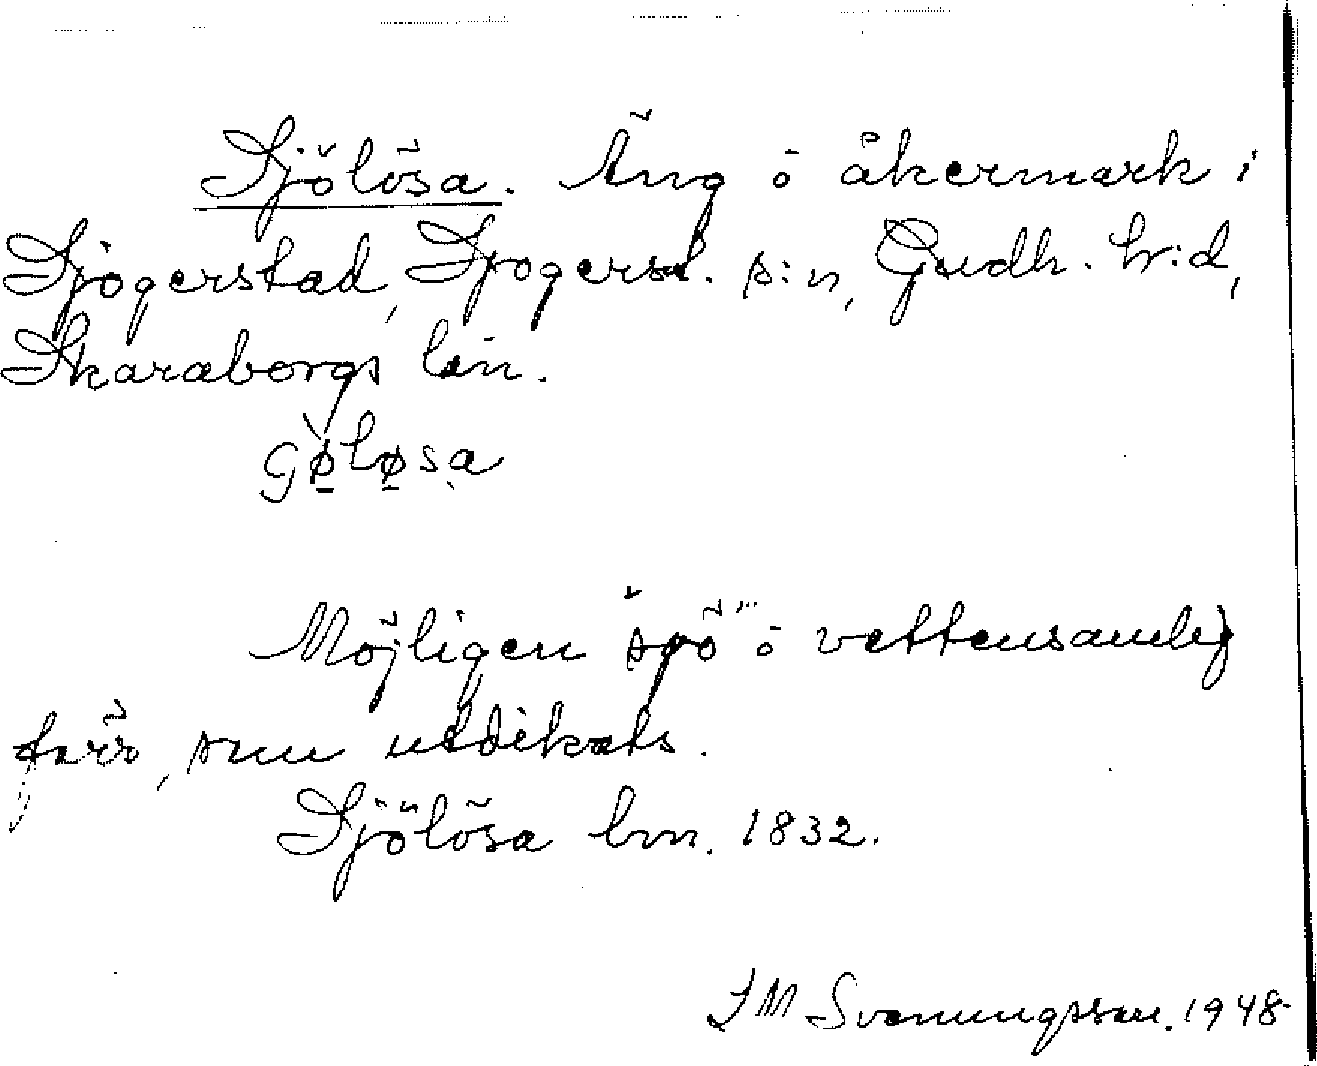 Sjölösa. Äng o åkermark i
Sjögerstad, Sjogerst. s:n, Gudh. hr:d,
Skaraborgs län.
Möjligen "sjö" o vattensamlg
förr, som utdikats.
Sjölösa lm. 1832.
J M Svenungsson. 1948